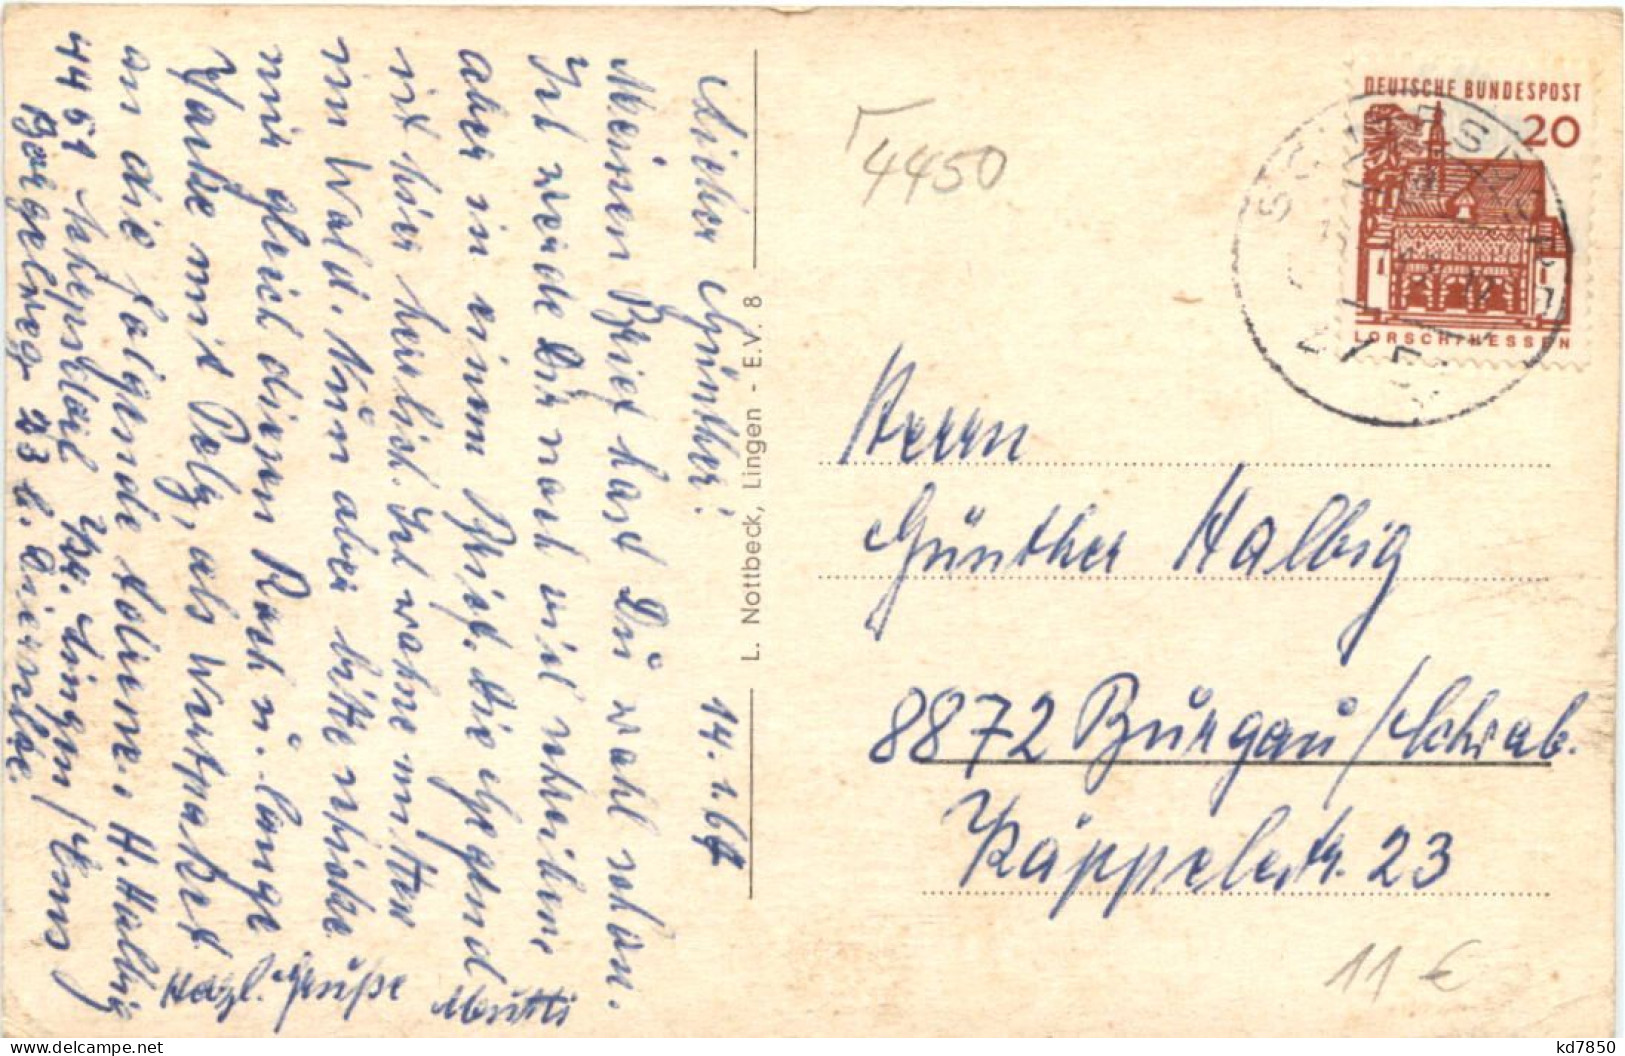 14.2.67
Lieber Günther!
Meinen Brief hast Du wohl schon.
Ich werde Dir noch viel schreiben,
aber in einem Brief. Die Gegend
ist hier herrlich. Ich wohne mitten
im Wald. Nun aber bitte schicke
mir gleich diesen Rock u. lange
Jacke mit Pelz, als Wertpaket
an die folgende Adresse. H. Halbig
4451 Schepsdorf Kr. Lingen/Ems
23 b.
Herzl. Grüße
Mutti
L. Nottbeck, Lingen - E.V. 8
4450
DEUTSCHE BUNDESPOST
20
LORSCH/HESSEN
Herrn
Günther Halbig
8872 Burgau/Schwab.
Käppelestr. 23
11 €
kd7850